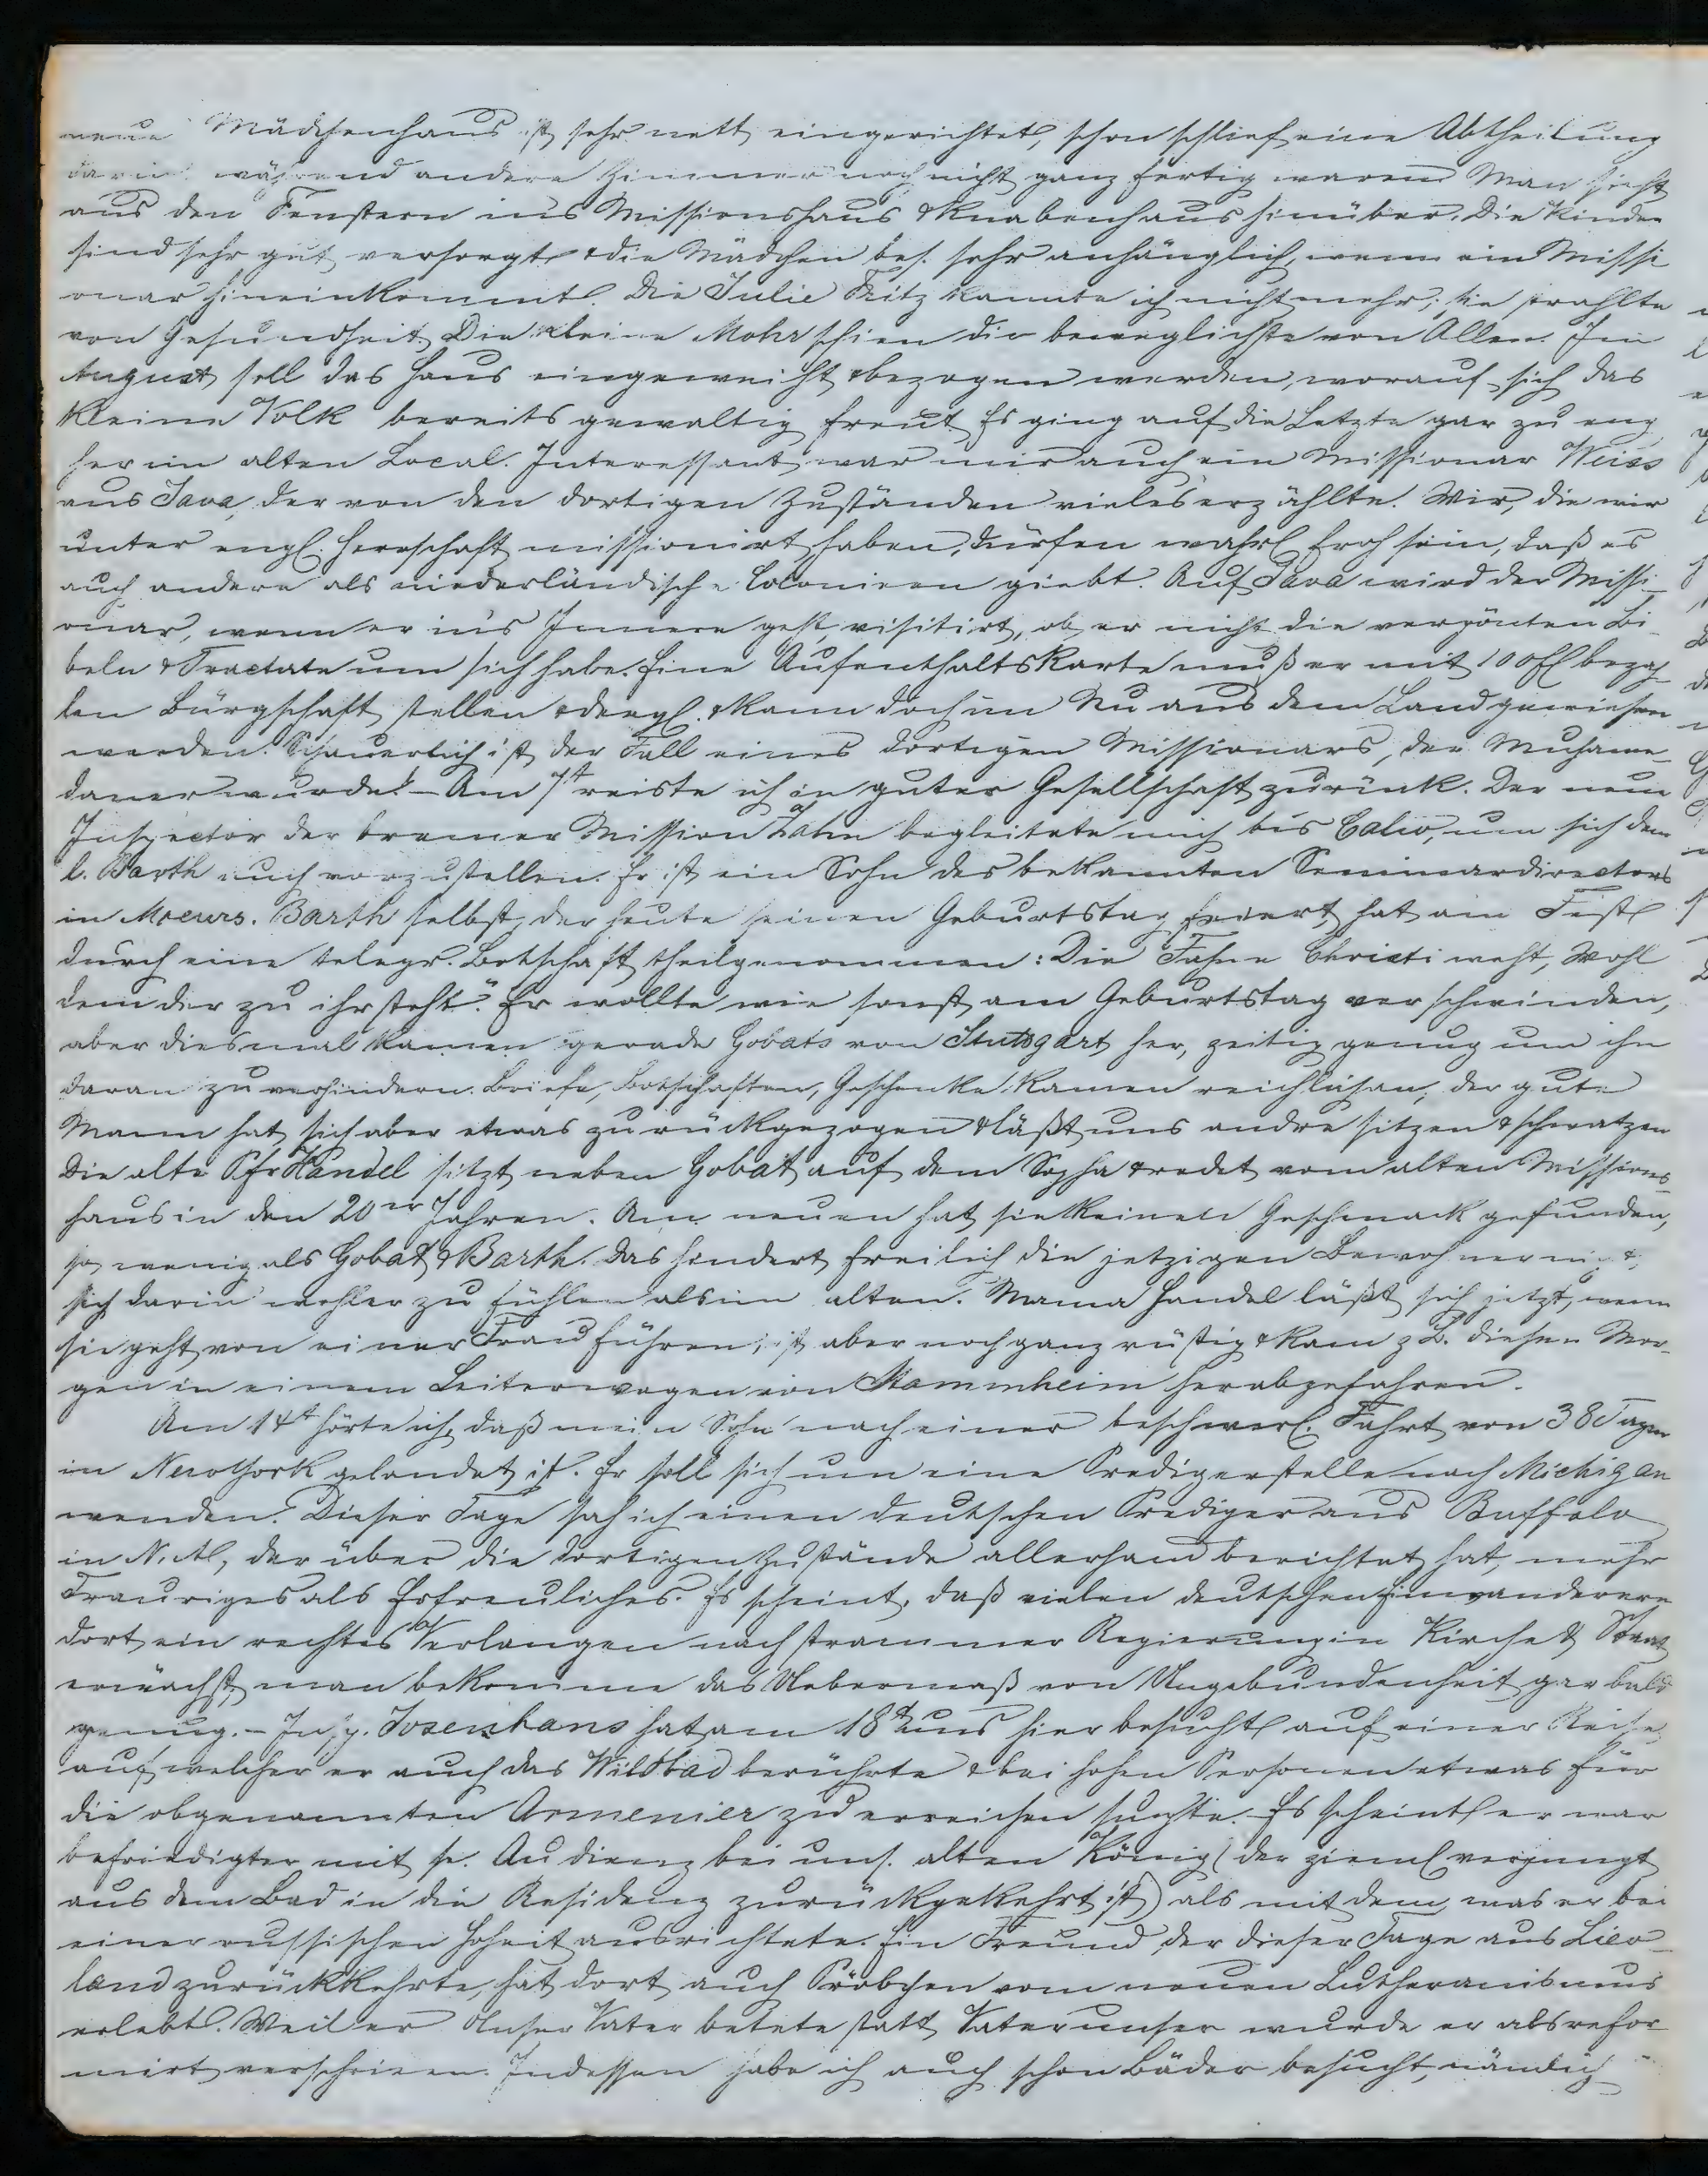 neue Mädchenhaus ist sehr nett eingerichtet, schon schlief eine Abtheilung
darin während andere Zimmer noch nicht ganz fertig waren. Man sieht
aus den Fenstern ins Missionshaus & Knabenhaus hinüber. Die Kinder
sind sehr gut versorgt & die Mädchen bes. sehr anhänglich, wenn ein Missi
onar hineinkommt. Die Julie Fritz kannte ich nicht mehr; sie strahlte
von Gesundheit. Die kleine Mohr schien die beweglichste von Allen. Im
August soll das Haus eingeweiht & bezogen werden, worauf sich das
kleine Volk bereits gewaltig freut. Es ging auf die Letzte gar zu eng
her im alten Local. Interessant war mir auch ein Missionar Weiss
aus Java, der von den dortigen Zuständen vieles erzählte. Wir, die wir
unter engl. Herrschaft missionirt haben, dürfen wahrl. froh sein, daß es
auch andere als niederländische Colonieen giebt. Auf Java wird der Missi-
onar, wenn er ins Innere geht, visitirt, ob er nicht die verpönten Bi-
beln & Tractate um sich habe. Eine Aufenthaltskarte muß er mit 100 fl bezah-
len Bürgschaft stellen & dergl. & kann doch im Nu aus dem Land gewiesen
werden. Schauerlich ist der Fall eines dortigen Missionars, der Muhame-
daner wurde. - Am 7t reiste ich in guter Gesellschaft zurück. Der neue
Inspector der bremer Mission Zahn begleitete mich bis Calw, um sich dem
l. Barth auch vorzustellen. Er ist ein Sohn des bekannten Seminardirectors
in Moeurs. Barth selbst, der heute seinen Geburtstag feiert, hat am Fest
durch eine telegr. Botschaft theilgenommen: Die Fahne Christi weht, Wohl
dem der zu ihr steht". Er wollte wie sonst am Geburtstag verschwinden,
aber diesmal kamen gerade Gobats von Stuttgart her, zeitig genug um ihn
daran zu verhindern. Briefe, Botschaften, Geschenke kamen reichlich an, der gute
Mann hat sich aber etwas zurückgezogen & läßt uns andre sitzen & schwatzen
Die alte Pfr Handel sitzt neben Gobat auf dem Sopha & redet vom alten Missions-
haus in den 20er Jahren. Am neuen hat sie keinen Geschmack gefunden,
so wenig als Gobat & Barth. Das hindert freilich die jetzigen Bewohner nicht,
sich darin wohler zu fühlen als im alten. Mama Handel läßt sich jetzt, wenn
sie geht von einer Frau führen, ist aber noch ganz rüstig & kam z. B. diesen Mor-
gen in einem Leiterwagen von Stammheim herabgefahren.
Am 14t hörte ich, daß mein Sohn nach einer beschwerl. Fahrt von 38 Tagen
in New York gelandet ist. Er soll sich um eine Predigerstelle nach Michigan
wenden. Dieser Tage sah ich einen deutschen Prediger aus Buffalo
in N. A., der über die dortigen Zustände allerhand berichtet hat, mehr
Trauriges als Erfreuliches. Es scheint, daß vielen deutschen Einwanderern
dort ein rechtes Verlangen nach strammer Regierung in Kirche & Staat
erwächst, man bekomme das Uebermaß von Ungebundenheit gar bald
genug. - Insp. Josenhans hat am 18t uns hier besucht auf einer Reise,
auf welcher er auch das Wildbad berührte & bei hohen Personen etwas für
die obgenannten Armenier zu erreichen suchte. Es scheint er war
befriedigter mit sr. Audienz bei uns. alten König (der ziemlich verjüngt
aus dem Bad in die Residenz zurückgekehrt ist) als mit dem, was er bei
einer russischen Hoheit ausrichtete. Ein Freund, der dieser Tage aus Liev-
land zurückkehrte, hat dort auch Pröbchen vom neuen Lutheranismus
erlebt. Weil er Unser Vater betete statt Vater unser wurde er als refor-
mirt verschrieen. Indessen habe ich auch schon Bäder besucht, nämlich